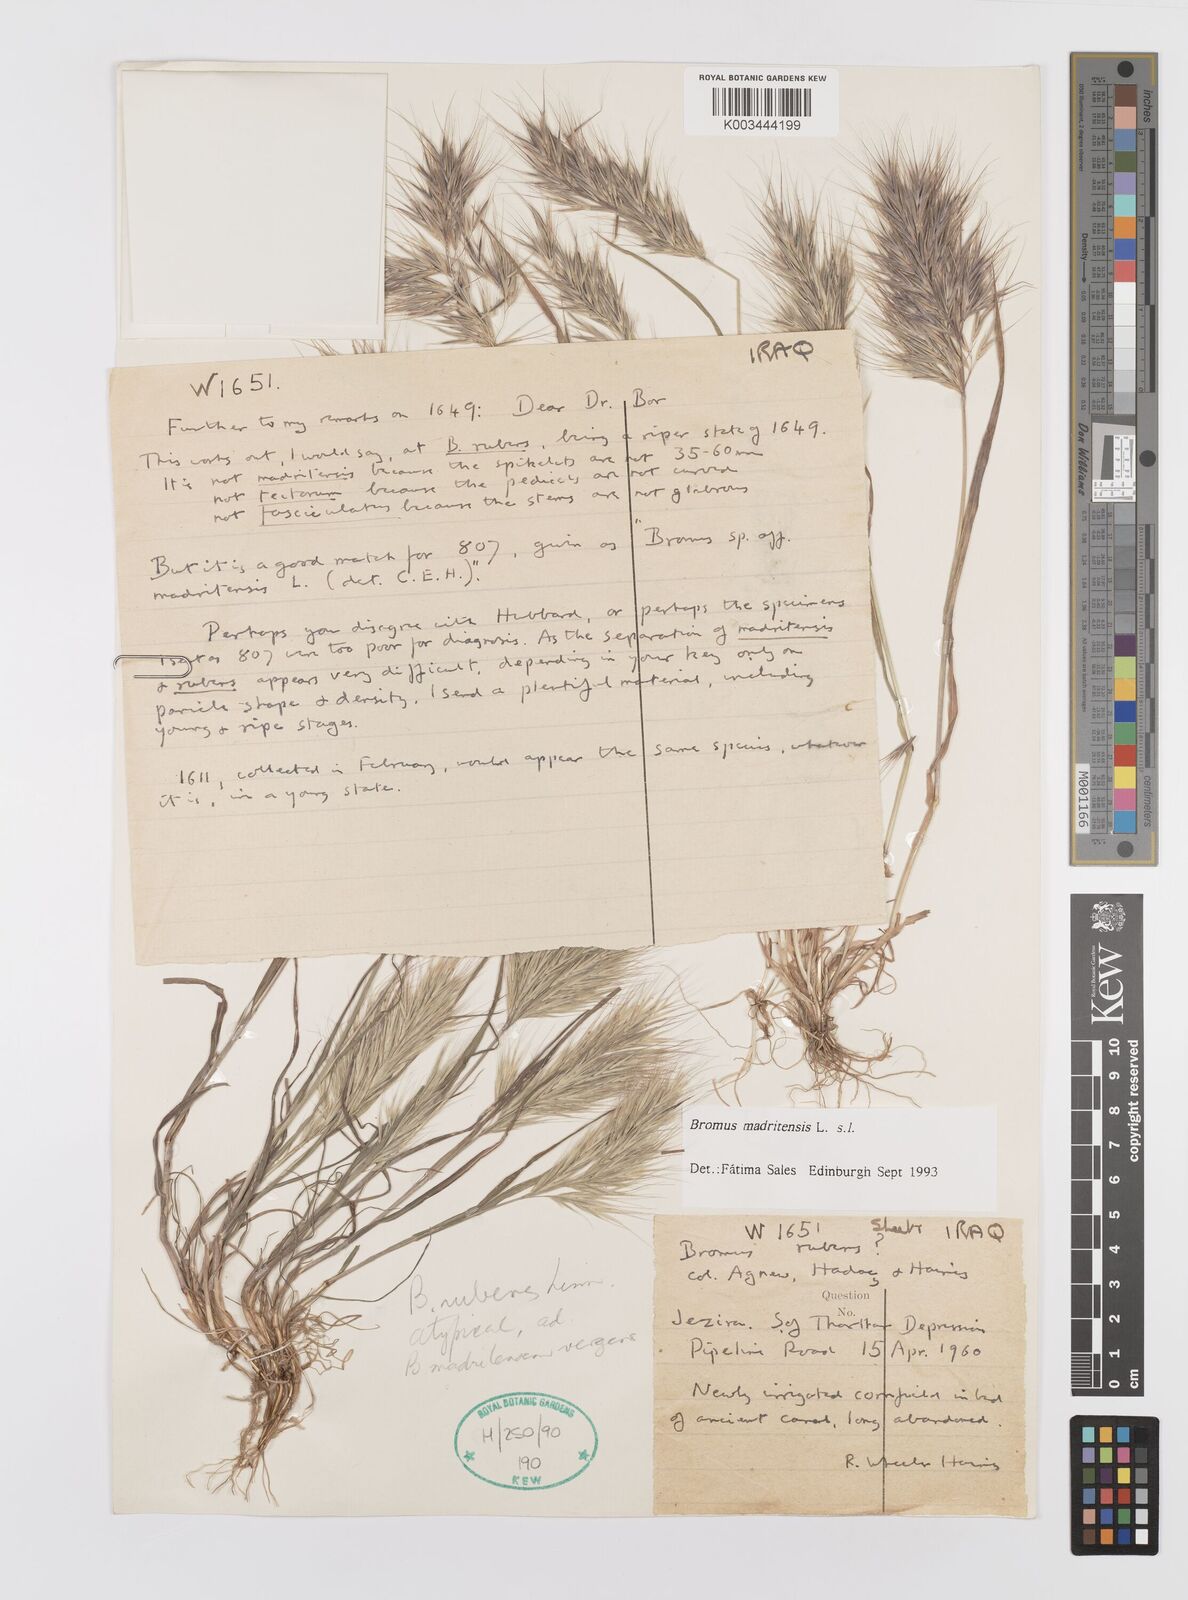 ROYAL BOTANIC GARDENS KEW
K003444199
W1651.
IRAQ
Further to my remarks on 1649: Dear Dr. Bor
This works out, I would say, at B. rubens, being a riper state of 1649.
It is not madritensis because the spikelets are not 35-60mm
not tectorum because the pedicels are not curved
not fasciculatus because the stems are not glabrous
But it is a good match for 807, given as "Bromus sp. aff.
madritensis L. (det. C.E.H.)".
Perhaps you disagree with Hubbard, or perhaps the specimens
I sent as 807 were too poor for diagnosis. As the separation of madritensis
& rubens appears very difficult, depending in your key only on
panicle shape & density, I send a plentiful material, including
young & ripe stages.
1611, collected in February, would appear the same species, whatever
it is, in a young state.
Bromus madritensis L. s.l.
Det.:Fátima Sales Edinburgh Sept 1993
W 1651 Sheet IRAQ
Bromus rubens ?
col. Agnew, Hadač & Haines
Question
No.
Jezira. S of Tharthar Depression
Pipeline Road 15 Apr. 1960
Newly irrigated cornfield in bed
of ancient canal, long abandoned.
R. Wheeler Haines
B. rubens Linn.
atypical, ad
B. madritensem vergens
ROYAL BOTANIC GARDENS
H/250/90
190
KEW
inches
centimetres
Density
Don Williams
M001166
Royal Botanic Gardens
Kew
copyright reserved
0 1 2 3 4 5 6 7 8 9 10
cm